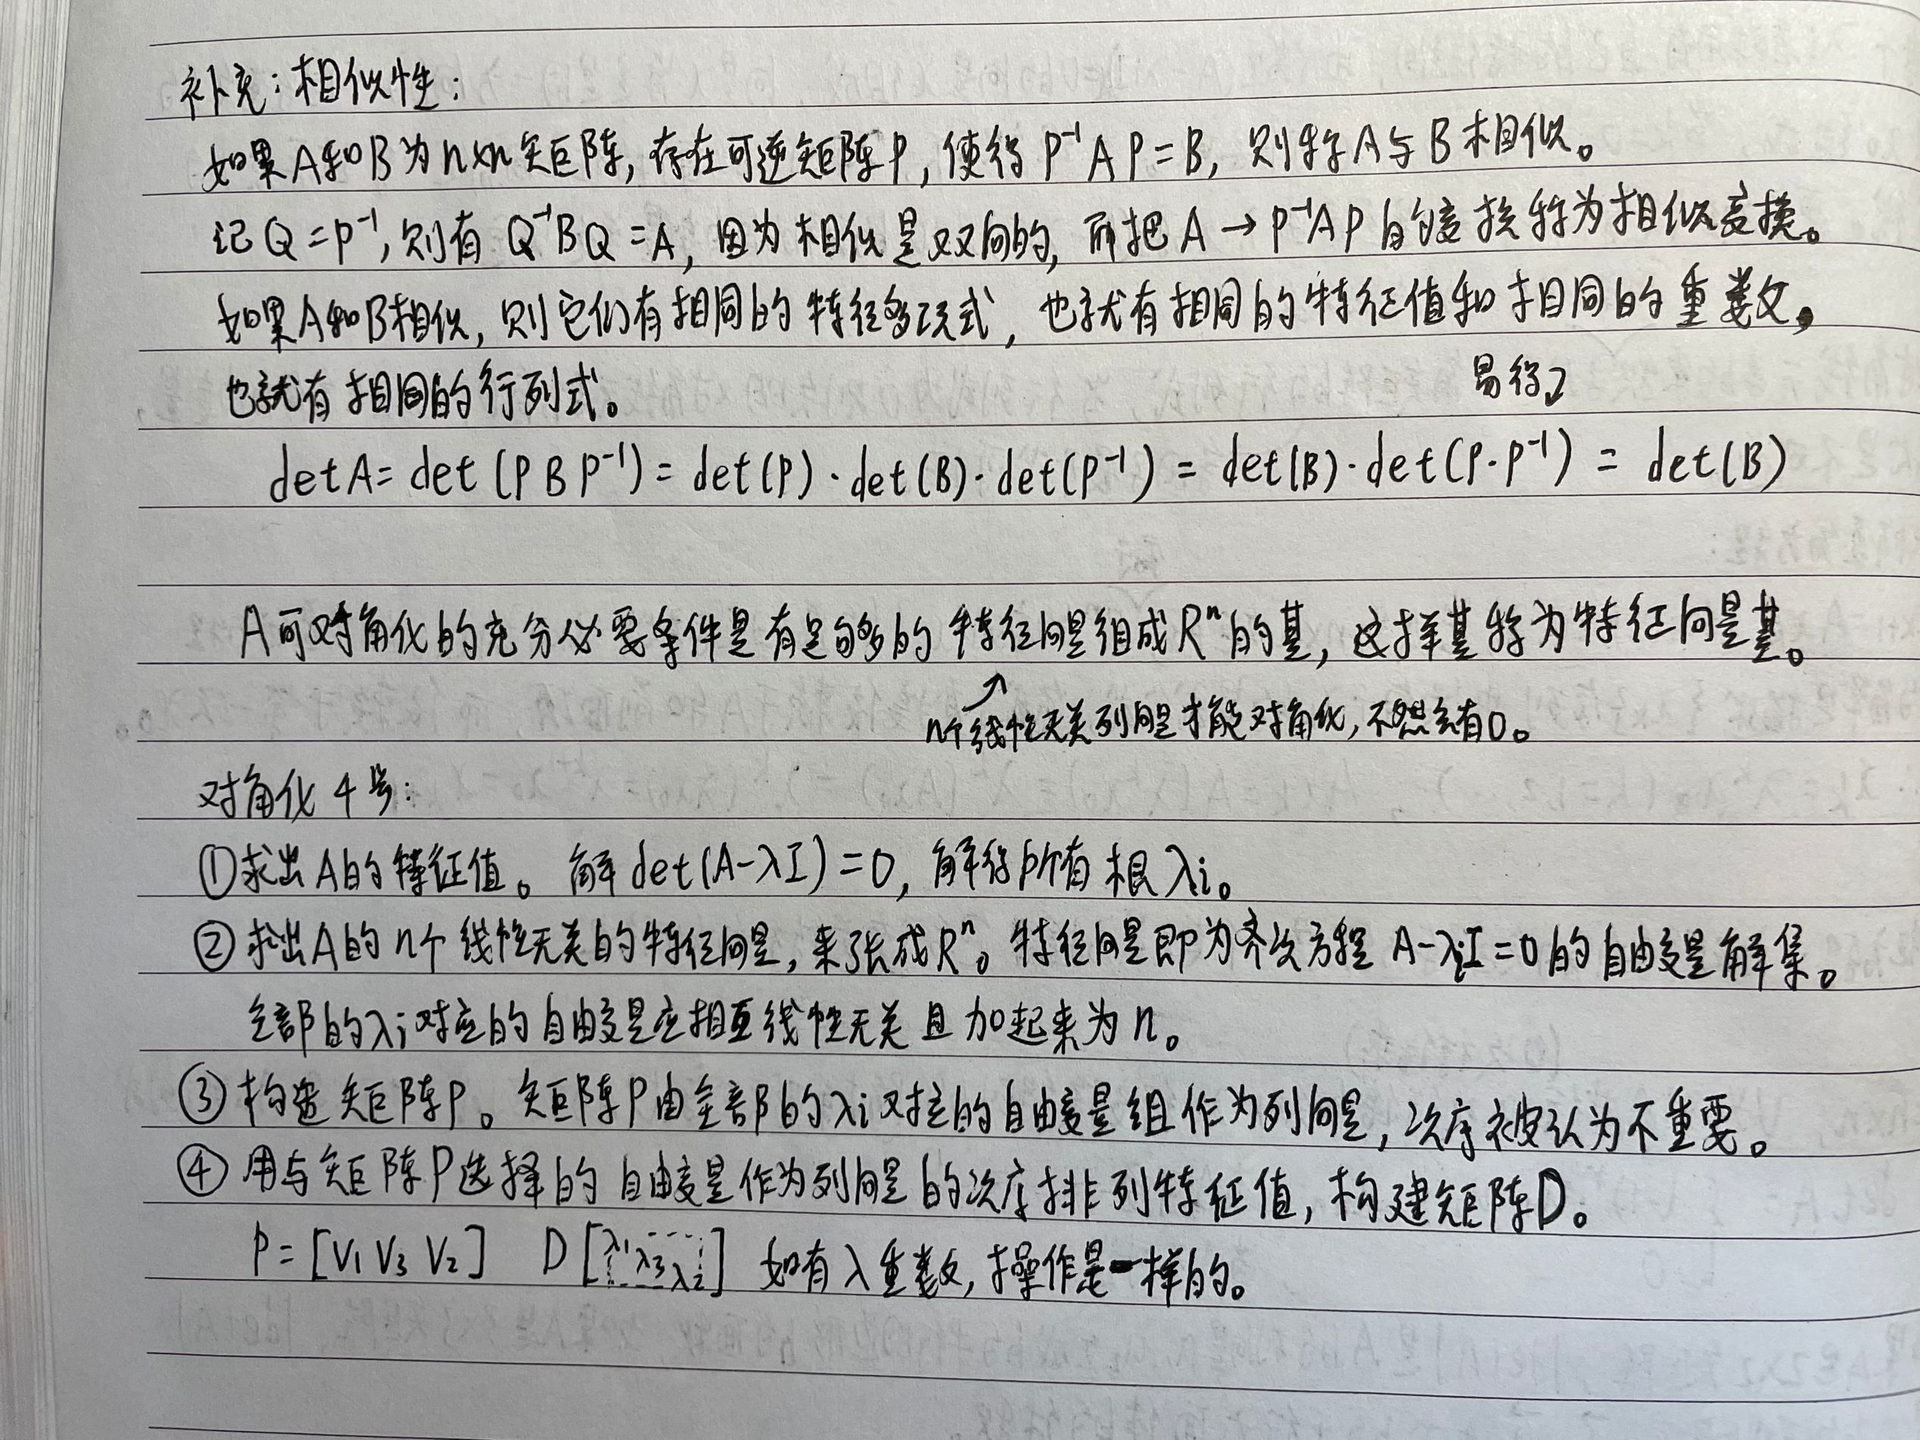 补充：相似性：
如果A和B为n×n矩阵，存在可逆矩阵P，使得 P⁻¹AP=B，则称A与B相似。
记Q=P⁻¹，则有 Q⁻¹BQ=A，因为相似是双向的，而把 A→P⁻¹AP 的变换称为相似变换。
如果A和B相似，则它们有相同的特征多项式，也就有相同的特征值和相同的重数，
也就有相同的行列式。
易得
detA=det(PBP⁻¹)=det(P)·det(B)·det(P⁻¹)=det(B)·det(P·P⁻¹)=det(B)
A可对角化的充分必要条件是有足够多的特征向量组成Rⁿ的基，这样基称为特征向量基。
n个线性无关列向量才能对角化，不然会有0。
对角化4步：
①求出A的特征值。解det(A-λI)=0，解得所有根λi。
②求出A的n个线性无关的特征向量，来张成Rⁿ。特征向量即为齐次方程 A-λiI=0的自由变量解集。
全部的λi对应的自由变量应相互线性无关且加起来为n。
③构造矩阵P。矩阵P由全部的λi对应的自由变量组作为列向量，次序被认为不重要。
④用与矩阵P选择的自由变量作为列向量的次序排列特征值，构建矩阵D。
P=[V₁ V₃ V₂] D[λ₁ λ₃ λ₂] 如有λ重数，操作是一样的。